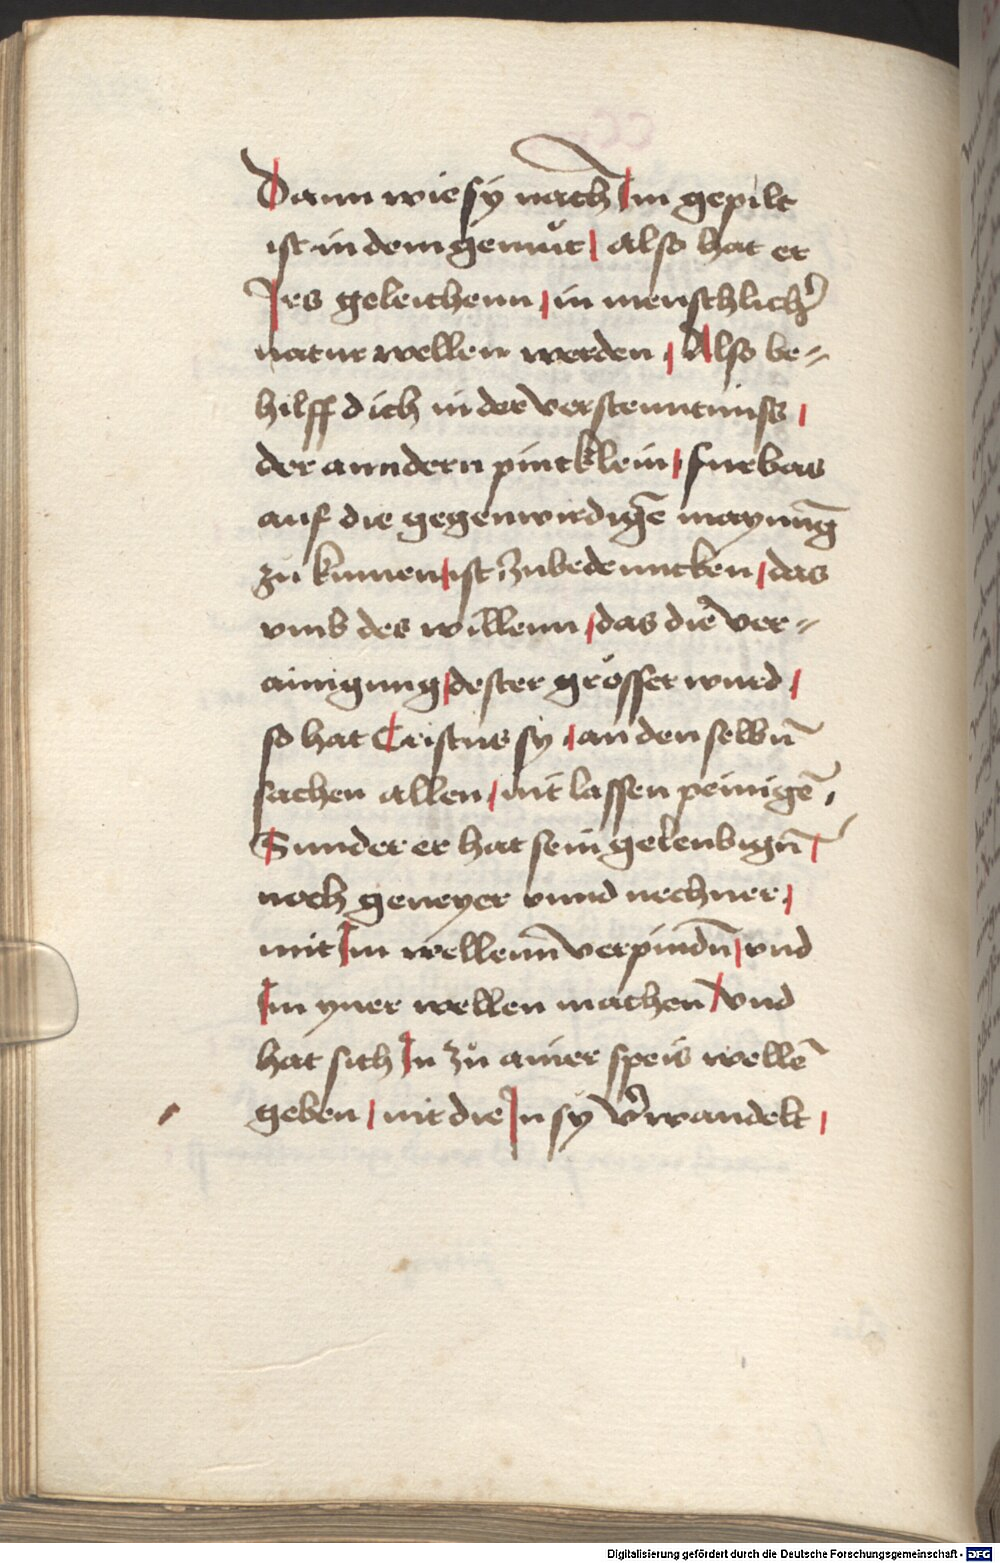 Dann wie sy nach Im gepilt
ist in dem gemuͤt / also hat er
Ires geleichenn / in menschlicher̄
natur wellen werden / Also be⸗
hilff dich in der verstenntnuss /
der anndern pintklein / furbas
auf die gegenwirdigē maynunḡ
zu kumen / ist zubedenncken / das
vmb des willenn / das die ver⸗
ainigung / dester grösser wurd /
so hat Cristus sy / an den selbn̄
sachen allen / nit lassen peinigē /
Sunder er hat sein gelenbign̄ /
noch geneyer vnnd nechner /
mit Im wellenn̄ verpindn̄ / vnd
Im yner wellen machen / vnd
hat sich In zu ainer speis wellē
geben / nit die In sy v̓wandelt /
Digitalisierung gefördert durch die Deutsche Forschungsgemeinschaft - DFG